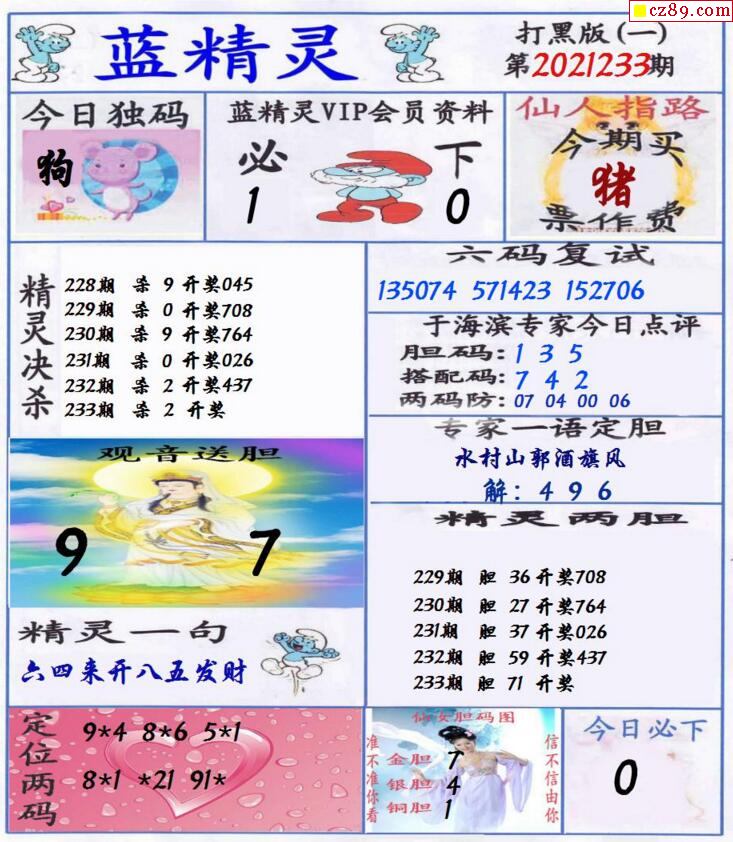 cz89.com
蓝精灵
打黑版(一)
第2021233期
今日独码
狗
蓝精灵VIP会员资料
必 下
1 0
仙人指路
今期买
猪
票作费
精灵决杀
228期 杀 9 开奖045
229期 杀 0 开奖708
230期 杀 9 开奖764
231期 杀 0 开奖026
232期 杀 2 开奖437
233期 杀 2 开奖
六码复试
135074 571423 152706
于海滨专家今日点评
胆码: 1 3 5
搭配码: 7 4 2
两码防: 07 04 00 06
专家一语定胆
水村山郭酒旗风
解: 4 9 6
观音送胆
9 7
精灵两胆
229期 胆 36 开奖708
230期 胆 27 开奖764
231期 胆 37 开奖026
232期 胆 59 开奖437
233期 胆 71 开奖
精灵一句
六四来开八五发财
定位两码
9*4 8*6 5*1
8*1 *21 91*
仙女胆码图
准不准你看
金胆 7
银胆 4
铜胆 1
信不信由你
今日必下
0